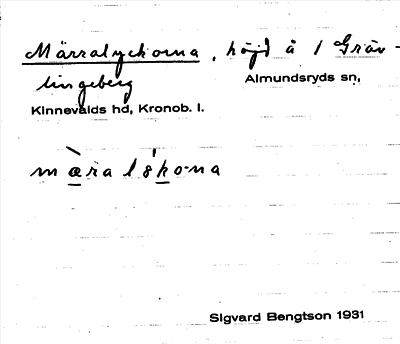 Märralyckorna, höjd å 1 Gräv-
lingeberg Almundsryds sn,
Kinnevalds hd, Kronob. l.
mæralskona
Sigvard Bengtson 1931